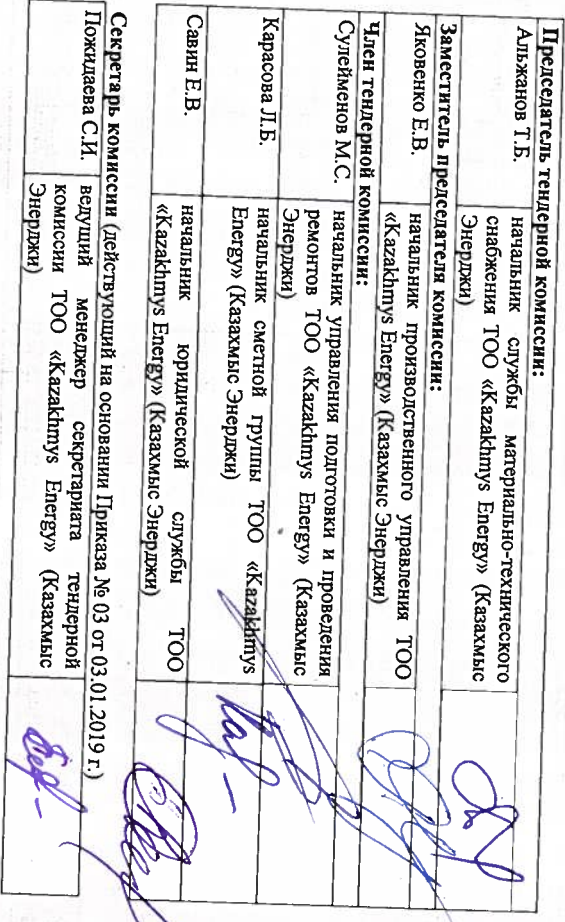 Председатель тендерной комиссии:
Альжанов Т.Б.
начальник службы материально-технического
снабжения ТОО «Kazakhmys Energy» (Казахмыс
Энерджи)
Заместитель председателя комиссии:
Яковенко Е.В.
начальник производственного управления ТОО
«Kazakhmys Energy» (Казахмыс Энерджи)
Член тендерной комиссии:
Сулейменов М.С.
начальник управления подготовки и проведения
ремонтов ТОО «Kazakhmys Energy» (Казахмыс
Энерджи)
Карасова Л.Б.
начальник сметной группы ТОО «Kazakhmys
Energy» (Казахмыс Энерджи)
Савин Е.В.
начальник юридической службы ТОО
«Kazakhmys Energy» (Казахмыс Энерджи)
Секретарь комиссии (действующий на основании Приказа № 03 от 03.01.2019 г.)
Пожидаева С.И.
ведущий менеджер секретариата тендерной
комиссии ТОО «Kazakhmys Energy» (Казахмыс
Энерджи)